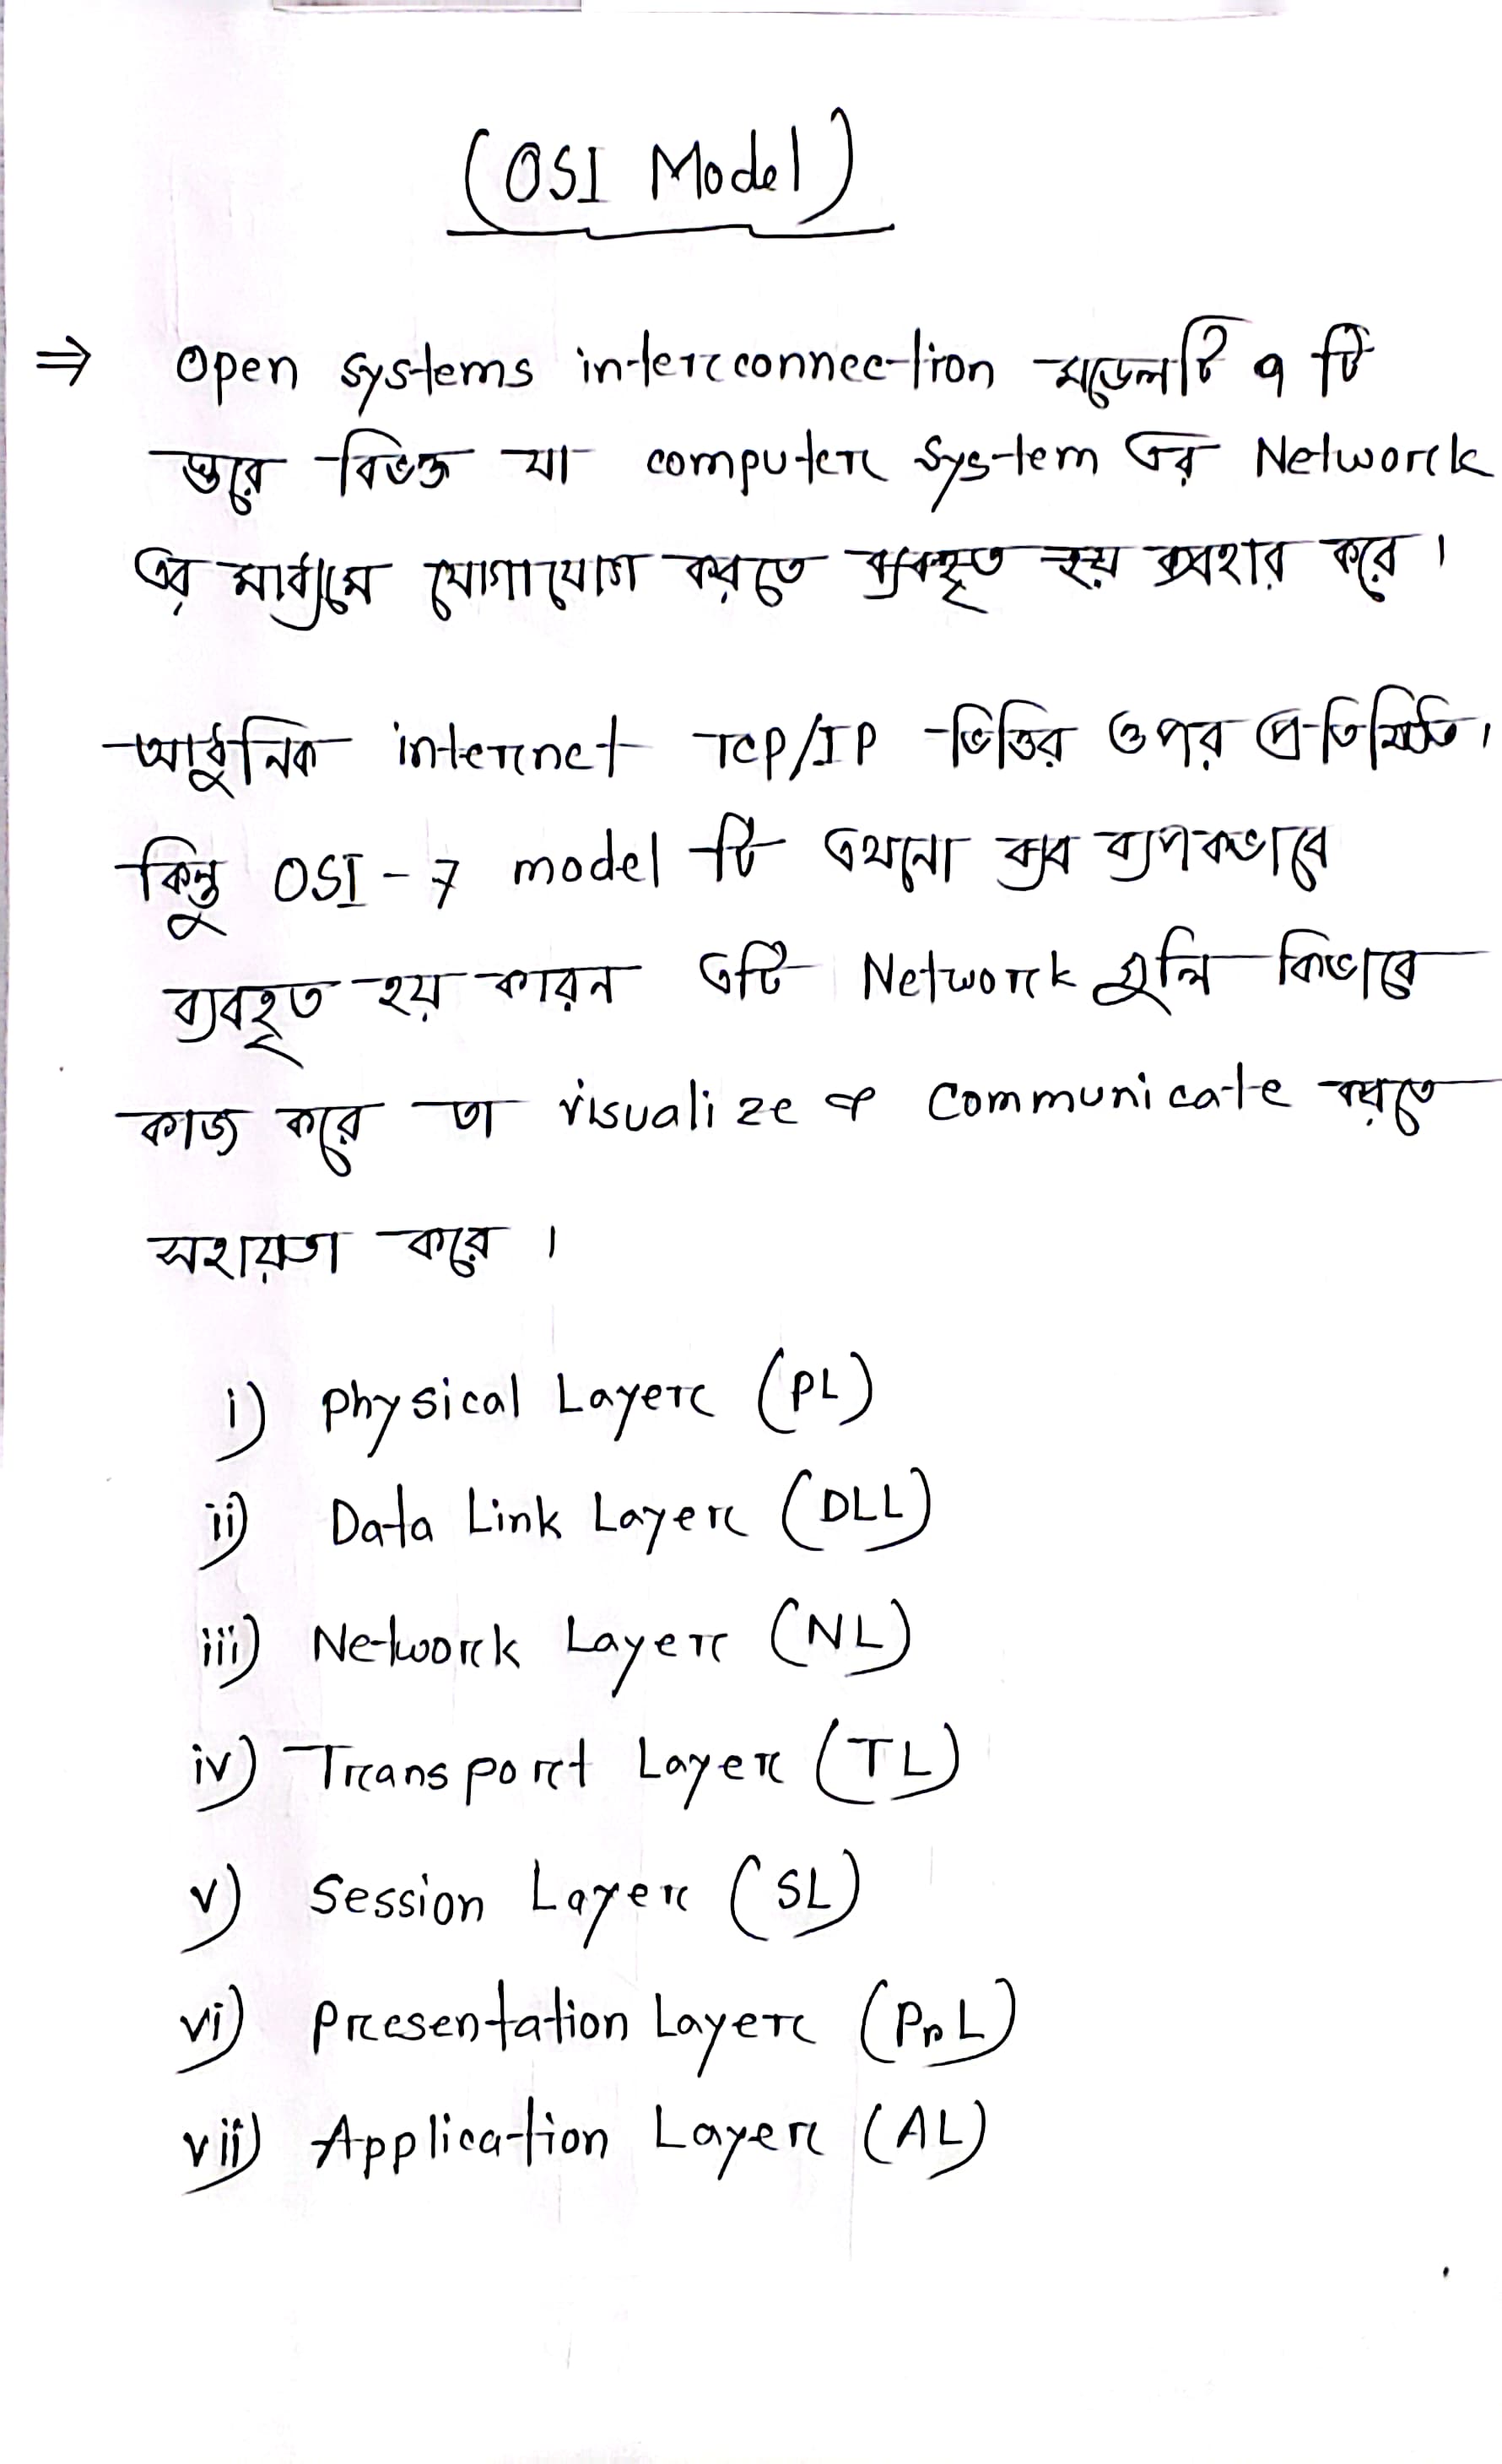 (OSI Model)
⇒ Open systems interconnection মডেলটি ৭ টি
স্তরে বিভক্ত যা computer system এর Network
এর মাধ্যমে যোগাযোগ করতে ব্যবহৃত হয় ব্যবহার করে।
আধুনিক internet TCP/IP ভিত্তির ওপর প্রতিষ্ঠিত।
কিন্তু OSI-7 model টি এখনো ব্যাপকভাবে
ব্যবহৃত হয় কারন এটি Network গুলি কিভাবে
কাজ করে তা visualize & Communicate করতে
সহায়তা করে।
i) Physical Layer (PL)
ii) Data Link Layer (DLL)
iii) Network Layer (NL)
iv) Transport Layer (TL)
v) Session Layer (SL)
vi) Presentation Layer (PrL)
vii) Application Layer (AL)